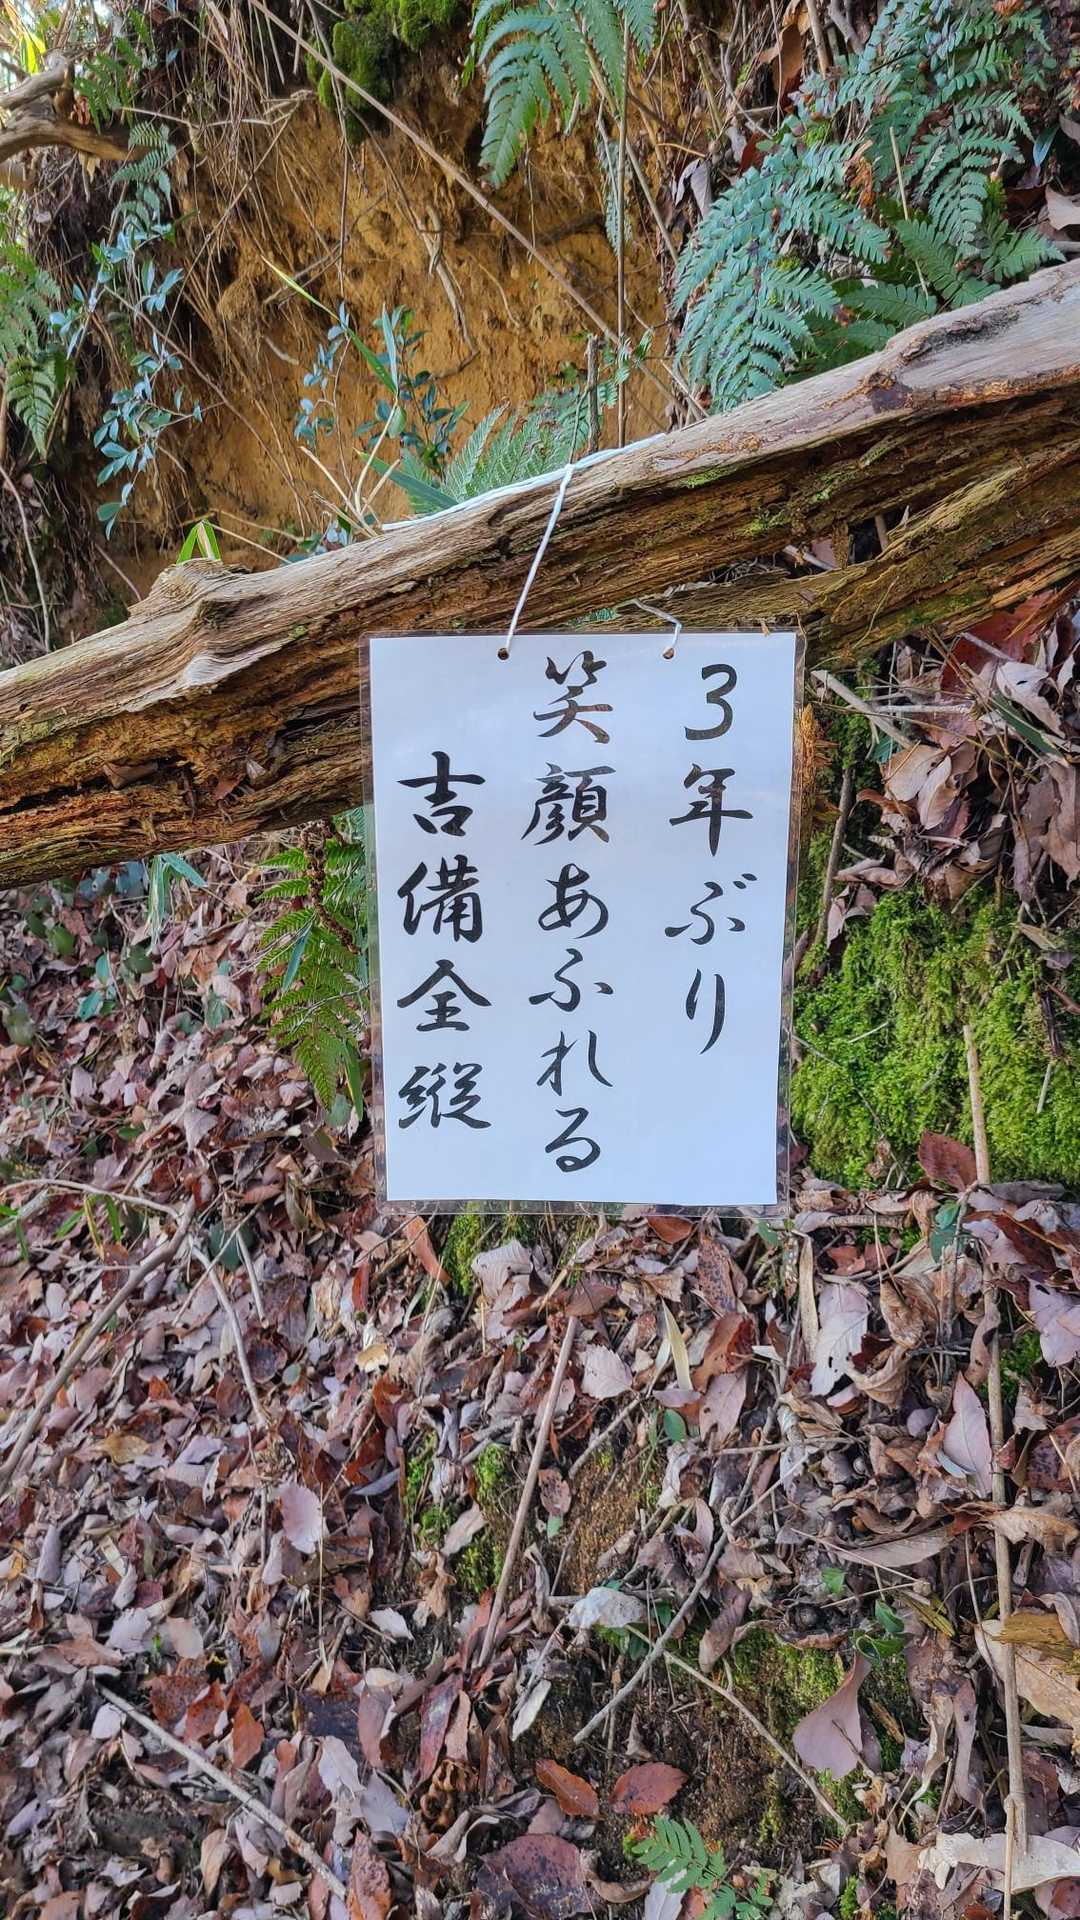 3年ぶり
笑顔あふれる
吉備全縦